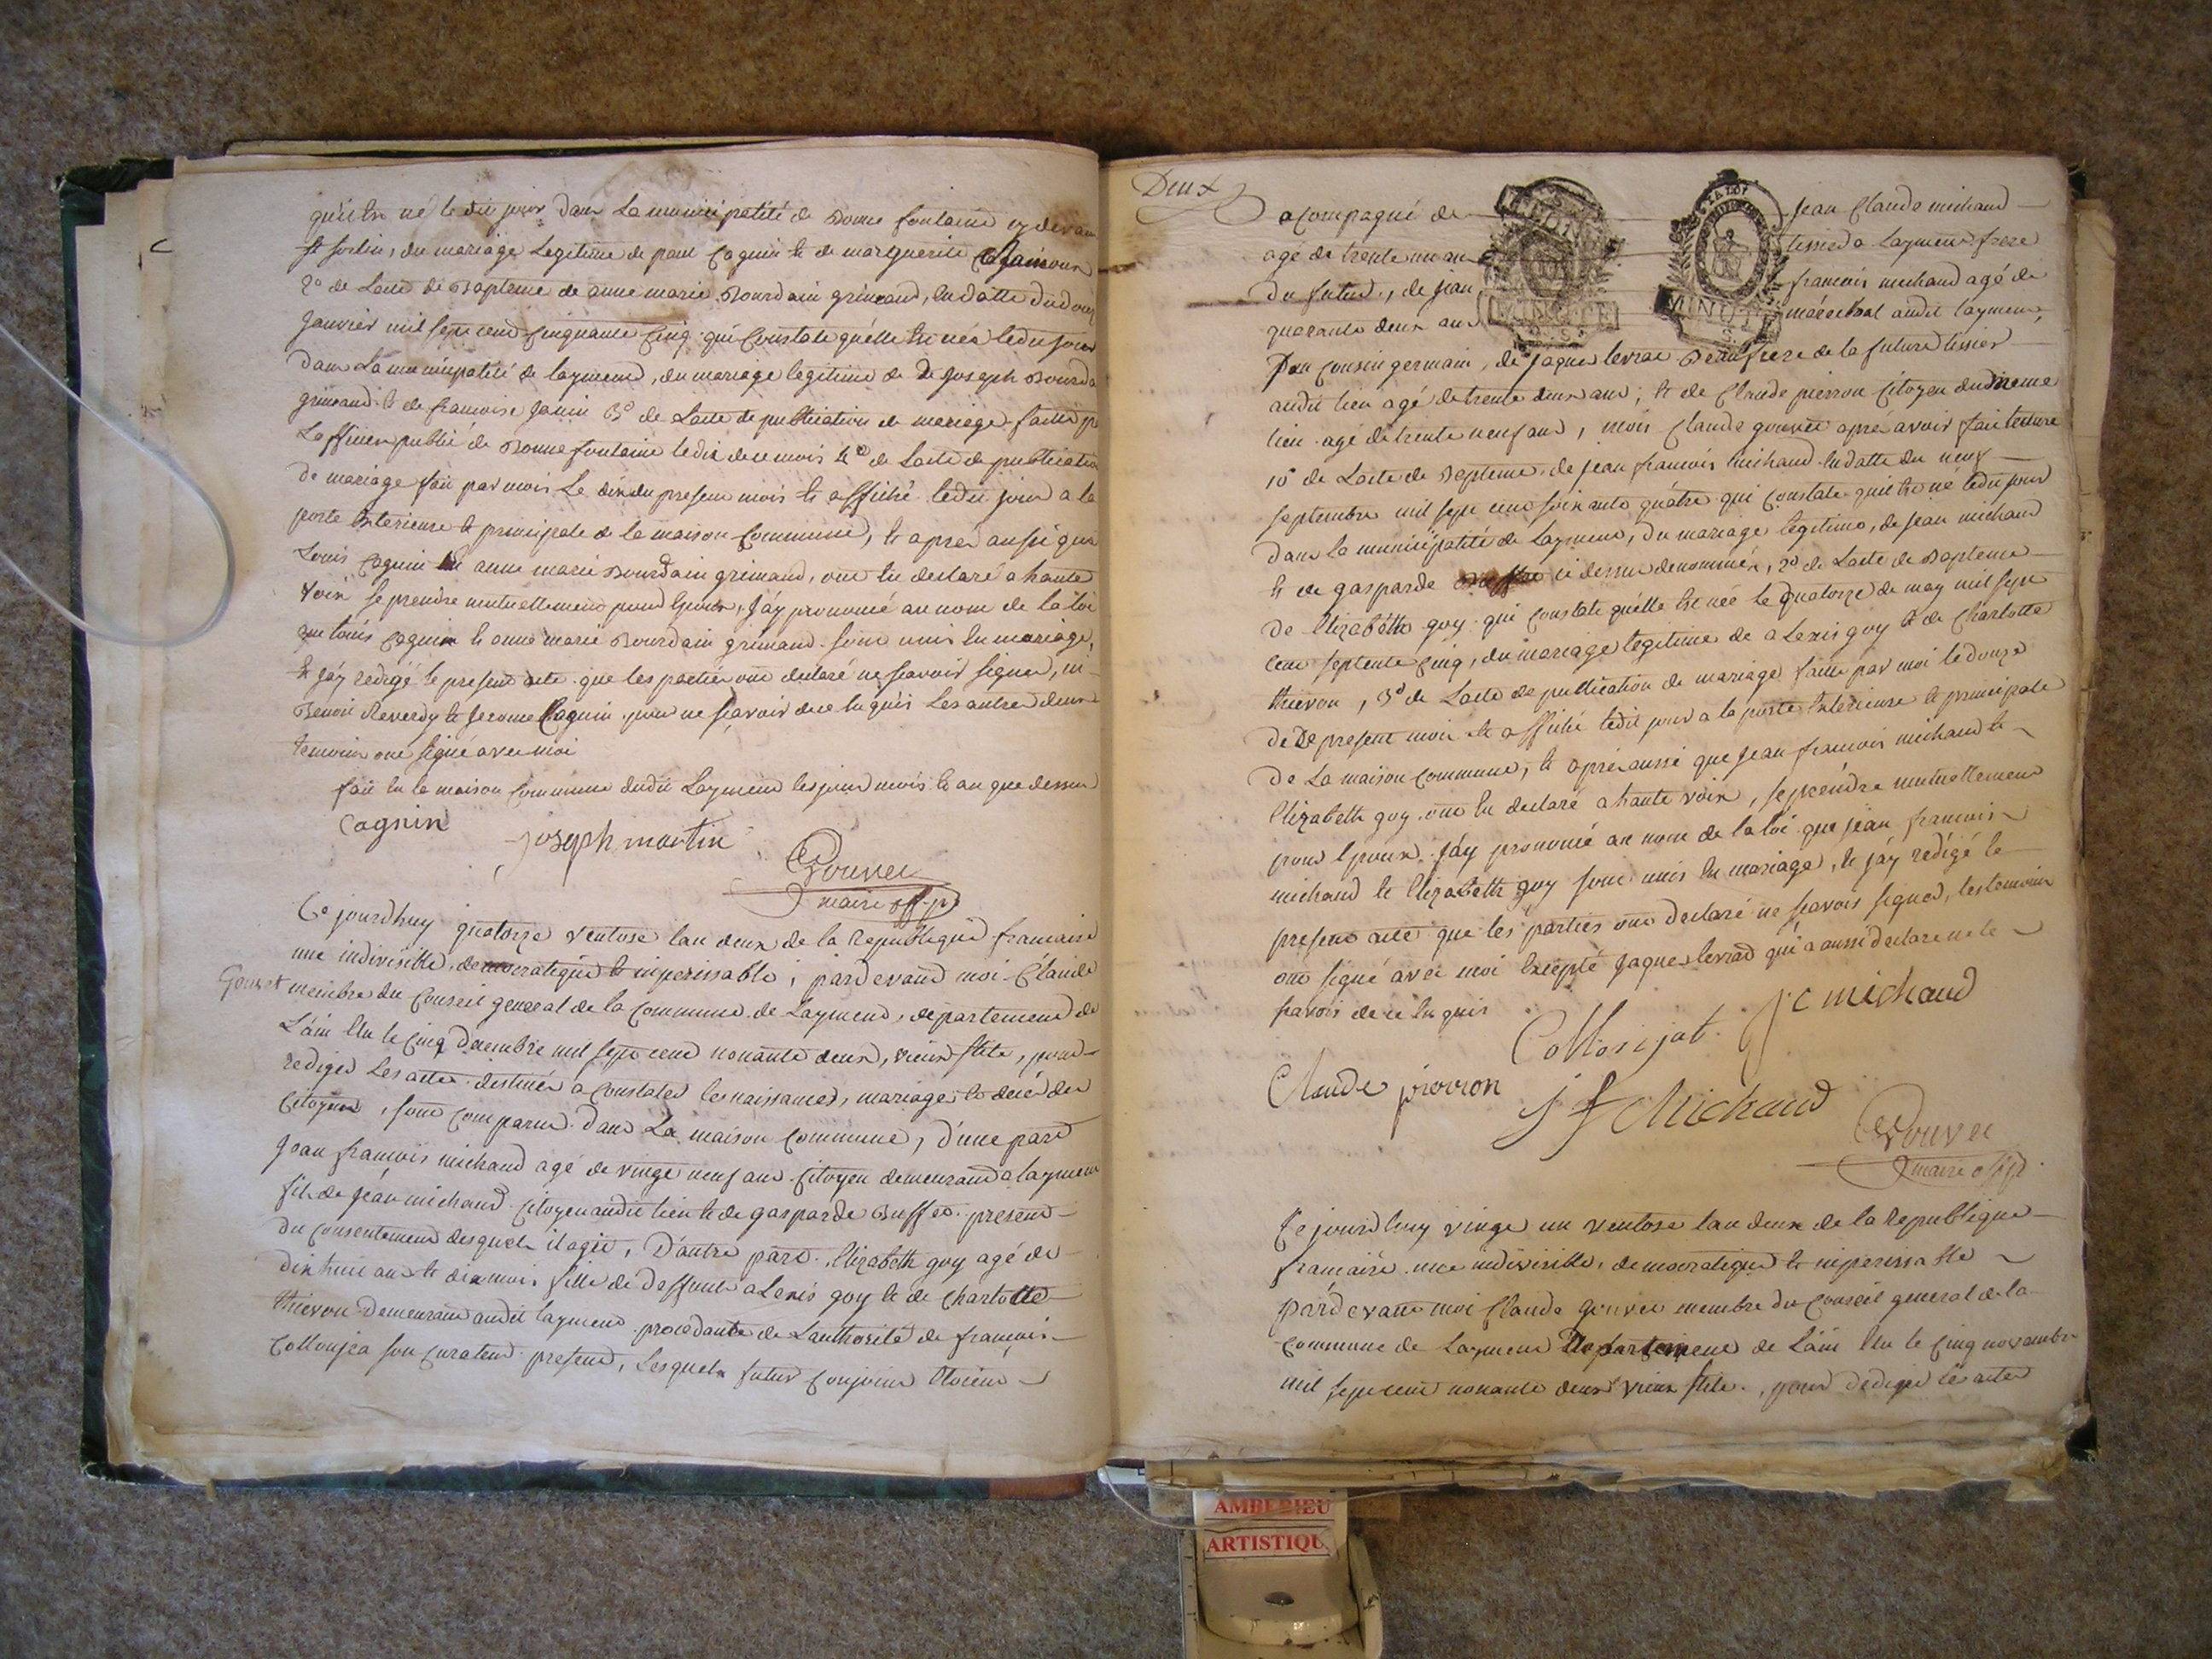 qu'il est né le dit jour dans la municipalité de Bonne fontaine cy devant
st sorlin, du mariage legitime de paul Cagnin et de marguerite
2o de Lacte de Bapteme de anne marie Bourdain grimaud, en datte du douze
janvier mil sept cent cinquante cinq qui Constate quelle est née ledit jour
dans La municipalité de laymend, du mariage legitime de Joseph Bourda
grimaud et de francoise Janin 3o de Lacte de publication de mariage faitte p
Lofficier publié de Bonne fontaine le dix de ce mois 4o de Lacte de publication
de mariage fait par moi Le dix du present mois et affiché ledit jour a la
porte Exterieure et principale de la maison Commune, et apres aussi que
Louis Cagnin et anne marie Bourdain grimaud, ont eu declaré a haute
voix se prendre mutuellement pour Epoux, J'áy prononcé au nom de la loi
que Louis Cagnin et anne marie Bourdain grimaud sont unis en mariage,
et j'áy redigé le present acte que les parties ont declaré ne scavoir signer, ni
Benoit Reverdy et Jerome Cagnin pour ne scavoir de ce enquis Les autres deux
temoins ont signé avec moi
fait en la maison Commune dudit Laymend les jour mois et an que dessus
Cagnin
joseph martin
Gouvet
maire off. p
Ce jourdhuy quatorze ventose lan deux de la Republique francaise
une indivisible, democratique et imperissable, pardevand moi Claude
Gouvet membre du Conseil general de la Commune de Laymend, departement de
L'ain Elu le cinq Decembre mil sept cent nonante deux, vieux stile, pour
rediger Les actes destinés a Constater les naissances, mariages et decé des
Citoyens, sont comparus dans La maison Commune, d'une part
Jean francois michaud agé de vingt neuf ans Citoyen demeurand a laymend
fils de Jéan michaud Citoyen audit lieu et de gasparde Buffet present
du consentement desquels il agit, D'autre part Elizabeth goy agé de
dix huit ans et dix mois fille de deffunt aLexis goy et de Charlotte
thievon demeurant audit laymend procedante de L'authorité de françois
Collonjea son curateur present, Lesquels futur conjoins Etoient
Deux
acompagné de Jean Claude michaud
agé de trente un ans tissier a Laymend frere
du futur, de jean francois michaud agé de
quarante deux ans maréchal audit laymend,
Son Cousin germain, de Jaques levrat Beaufrere de la future tissier
audit lieu agé de trente deux ans; et de Claude pierron Citoyen du meme
lieu agé de trente neuf ans, moi Claude gouvet apré avoir fait lecture
1o de Lacte de Bapteme de jean francois michaud en datte du neuf
septembre mil sept cent soixante quâtre qui Constate qu'il est né ledit jour
dans la municipalité de Laymend, du mariage legitime, de Jean michaud
et de gasparde Buffet ci dessus denommés, 2o de Lacte de Bapteme
de Elizabéth goy qui constate quélle est née le quatorze de may mil sept
cent septente cinq, du mariage legitime de aLexis goy et de Charlotte
thievon, 3o de Lacte de publication de mariage faitte par moi le douze
de present mois et affiché ledit jour a la porte Exterieure et principale
de La maison commune, et aprés aussi que Jean francois michaud et
Elizabeth goy ont eu declaré a haute voix, se prendre mutuellement
pour Epoux, j'áy prononcé au nom de la loi que jean francois
michaud et Elizabeth goy sont unis en mariage, et j'áy redigé le
present acte que les parties ont declaré ne scavoir signer, les temoins
ont signé avec moi Excepté Jaques levrat qui a aussi declare ne le
scavoir de ce enquis
Collonjat
jc michaud
Claude pierron
jf Michaud
Gouvet
maire off p.
Ce jourdhuy vingt un ventose lan deux de la Republique
francaise une indivisible, democratique et imperissable
pardevant moi Claude gouvet membre du Conseil general de la
Commune de Laymend departement de L'ain Elu le cinq novembre
mil sept cent nonante deux vieux stile, pour rediger les actes
LA LOI
MINUTE
MINUTE
AMBERIEU
ARTISTIQU